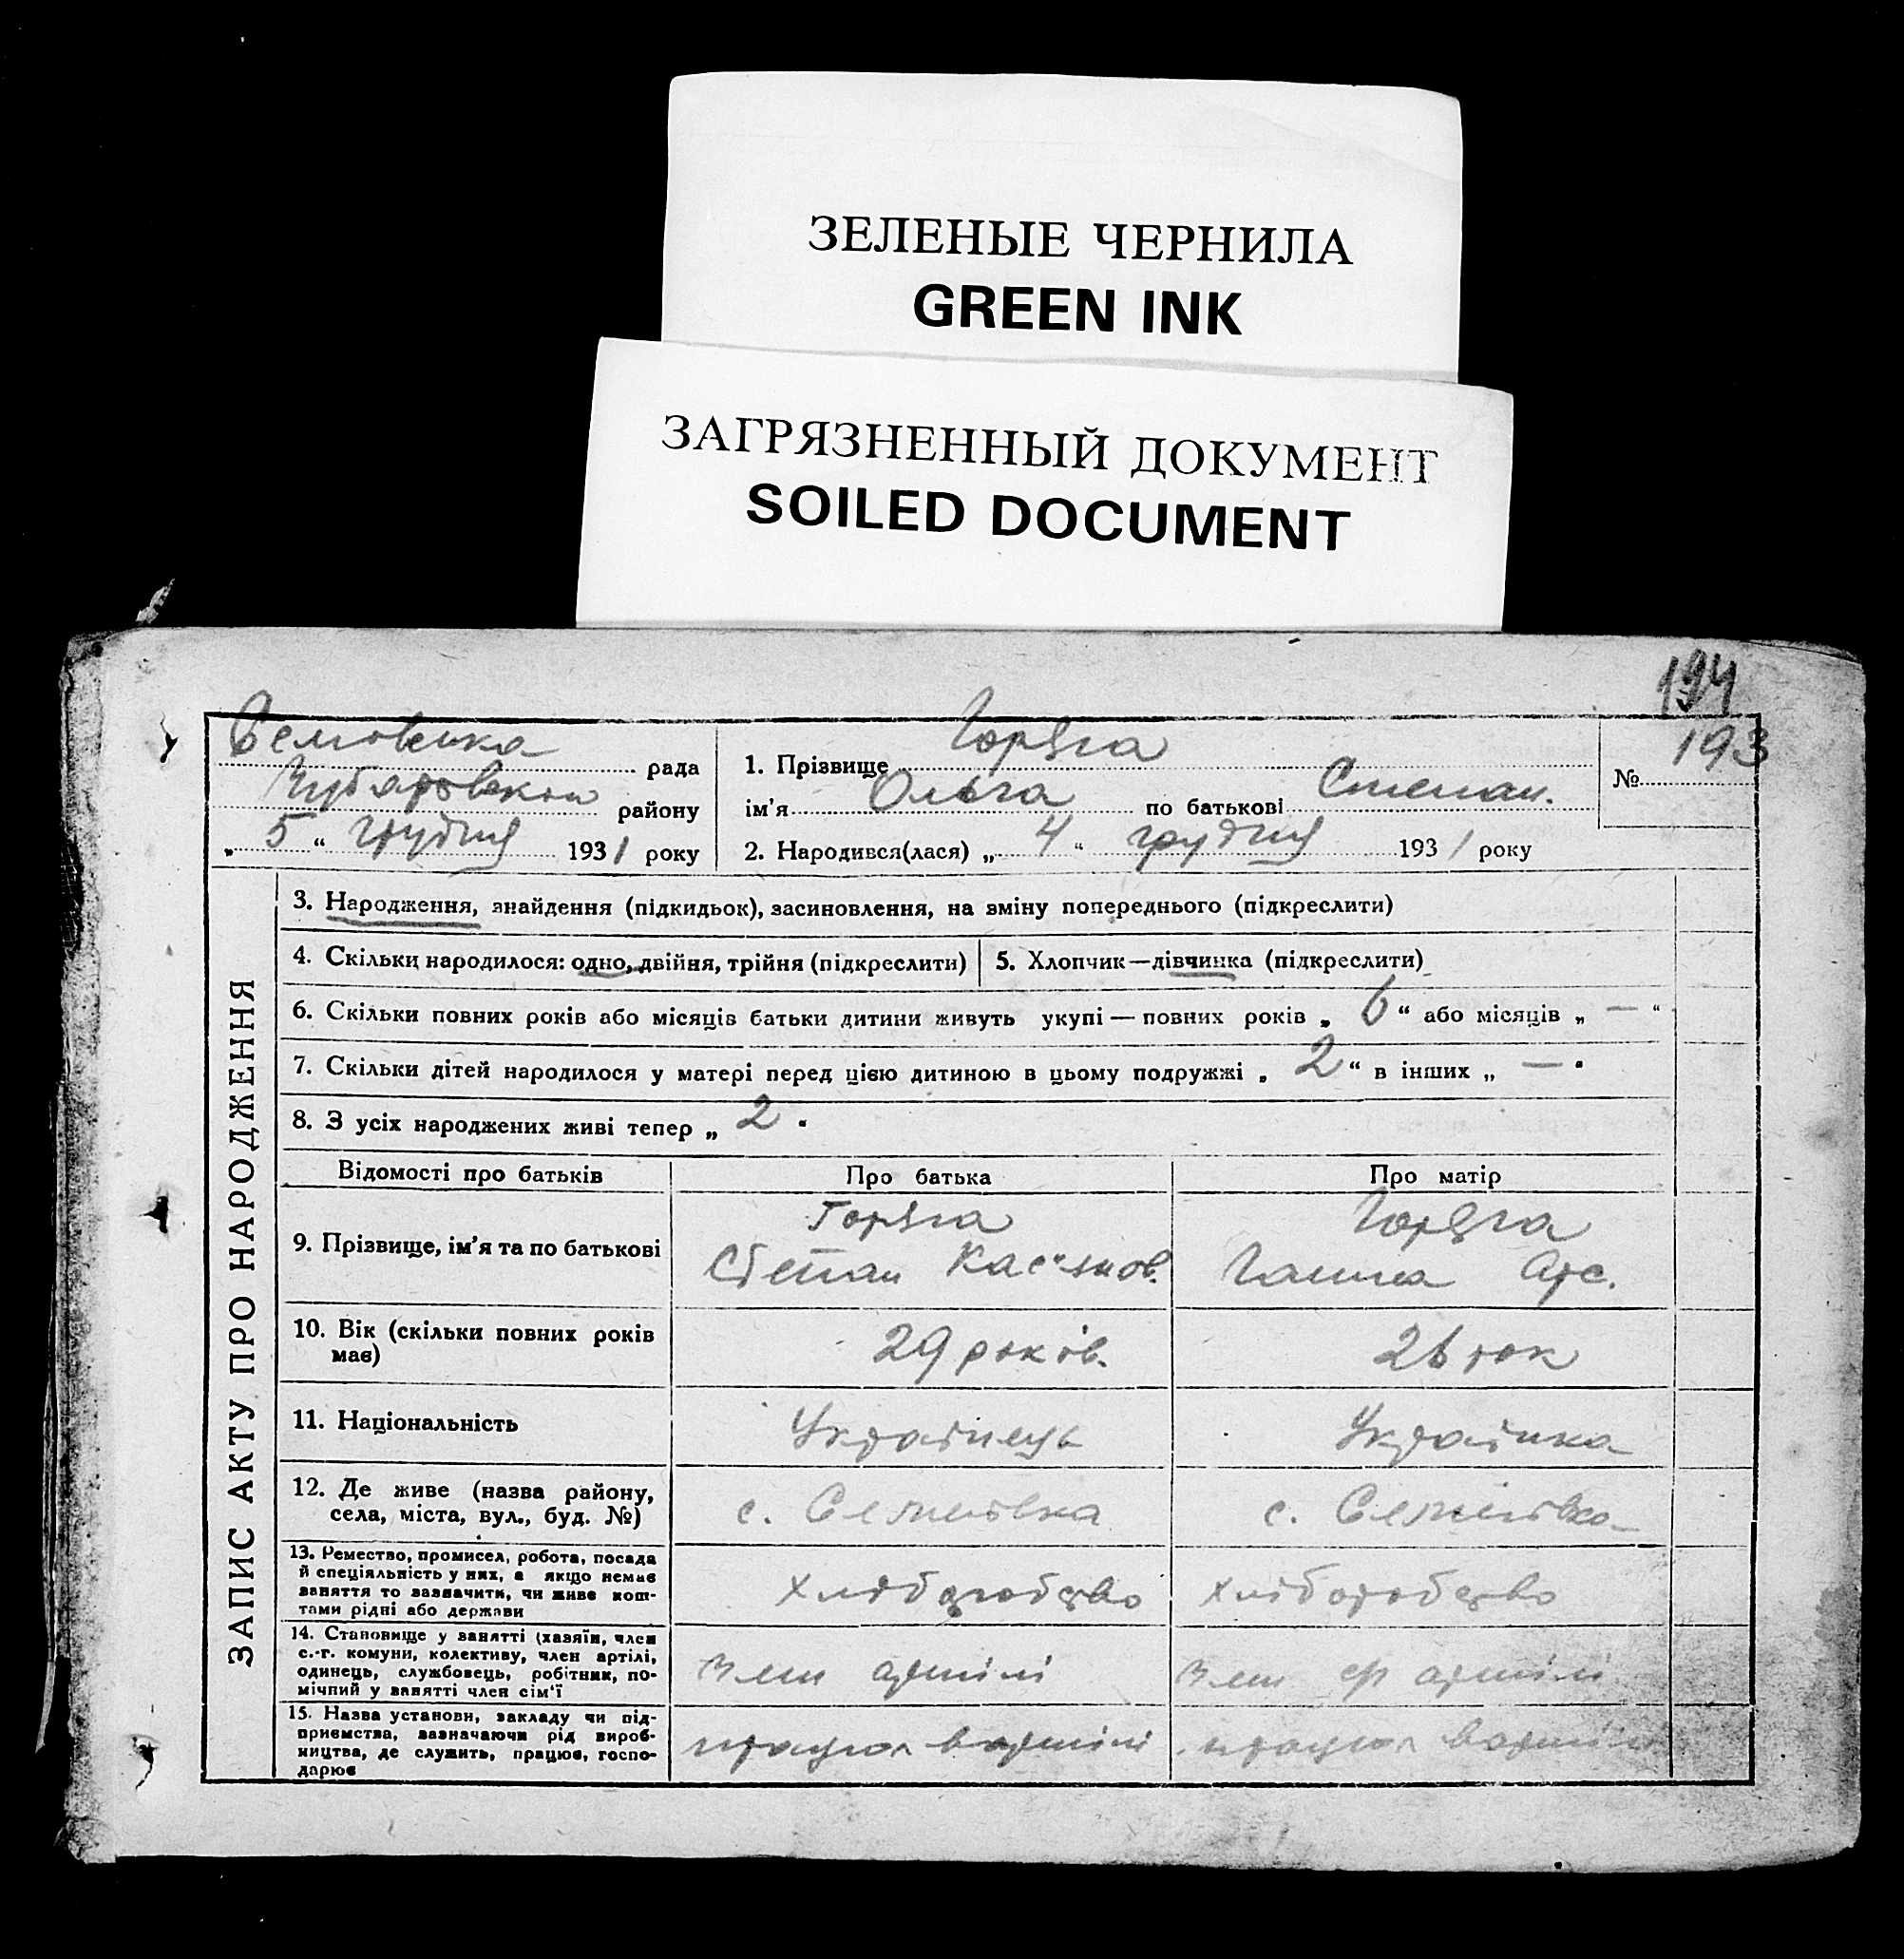 ЗЕЛЕНЫЕ ЧЕРНИЛА
GREEN INK
ЗАГРЯЗНЕННЫЙ ДОКУМЕНТ
SOILED DOCUMENT
194
рада
району
„ 5 “ грудня 1931 року
1. Прізвище
ім’я Ольга по батькові Степан.
2. Народився(лася) „ 4 “ грудня 1931 року
№ 193
ЗАПИС АКТУ ПРО НАРОДЖЕННЯ
3. Народження, знайдення (підкидьок), засиновлення, на зміну попереднього (підкреслити)
4. Скільки народилося: одно, двійня, трійня (підкреслити)
5. Хлопчик—дівчинка (підкреслити)
6. Скільки повних років або місяців батьки дитини живуть укупі — повних років „ 6 “ або місяців „ — “
7. Скільки дітей народилося у матері перед цією дитиною в цьому подружжі „ 2 “ в інших „ — "
8. З усіх народжених живі тепер „ 2 "
Відомості про батьків
Про батька
Про матір
9. Прізвище, ім’я та по батькові
Степан Кас"янов.
Ганна Арс.
10. Вік (скільки повних років
має)
29 років.
26 рок
11. Національність
Українець
Українка
12. Де живе (назва району,
села, міста, вул., буд. №)
с. Семенівка
с. Семенівка
13. Ремество, промисел, робота, посада
й спеціяльність у них, а якщо немає
заняття то зазначити, чи живе кош-
тами рідні або держави
Хліборобство
Хліборобство
14. Становище у занятті (хазяїн, член
с.-г. комуни, колективу, член артілі,
одинець, службовець, робітник, по-
мічний у занятті член сім’ї
Член артілі
Член артілі
15. Назва установи, закладу чи під-
приємства, зазначаючи рід вироб-
ництва, де служить, працює, госпо-
дарює
працює в артілі
працює в артілі